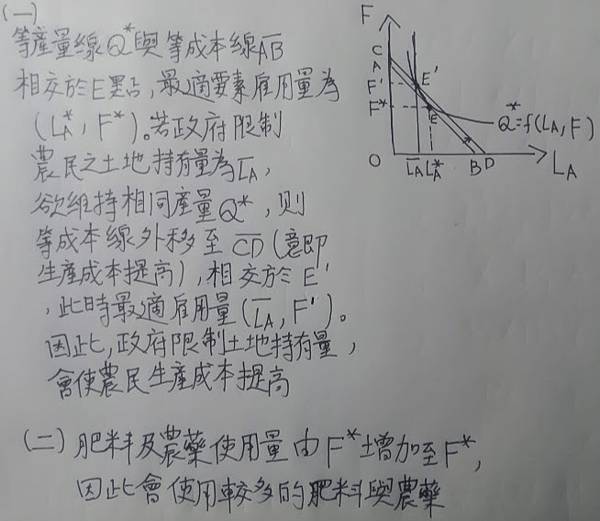 (一)
等產量線Q*與等成本線AB
相交於E點,最適要素雇用量為
(LA*, F*)。若政府限制
農民之土地持有量為LA,
欲維持相同產量Q*,則
等成本線外移至CD(意即
生產成本提高),相交於E'
,此時最適雇用量(LA, F')。
因此,政府限制土地持有量,
會使農民生產成本提高
(二) 肥料及農藥使用量由F*增加至F*,
因此會使用較多的肥料與農藥
F
C
A
F'
F*
O
E'
E
Q*=f(LA, F)
LA LA* B D
LA